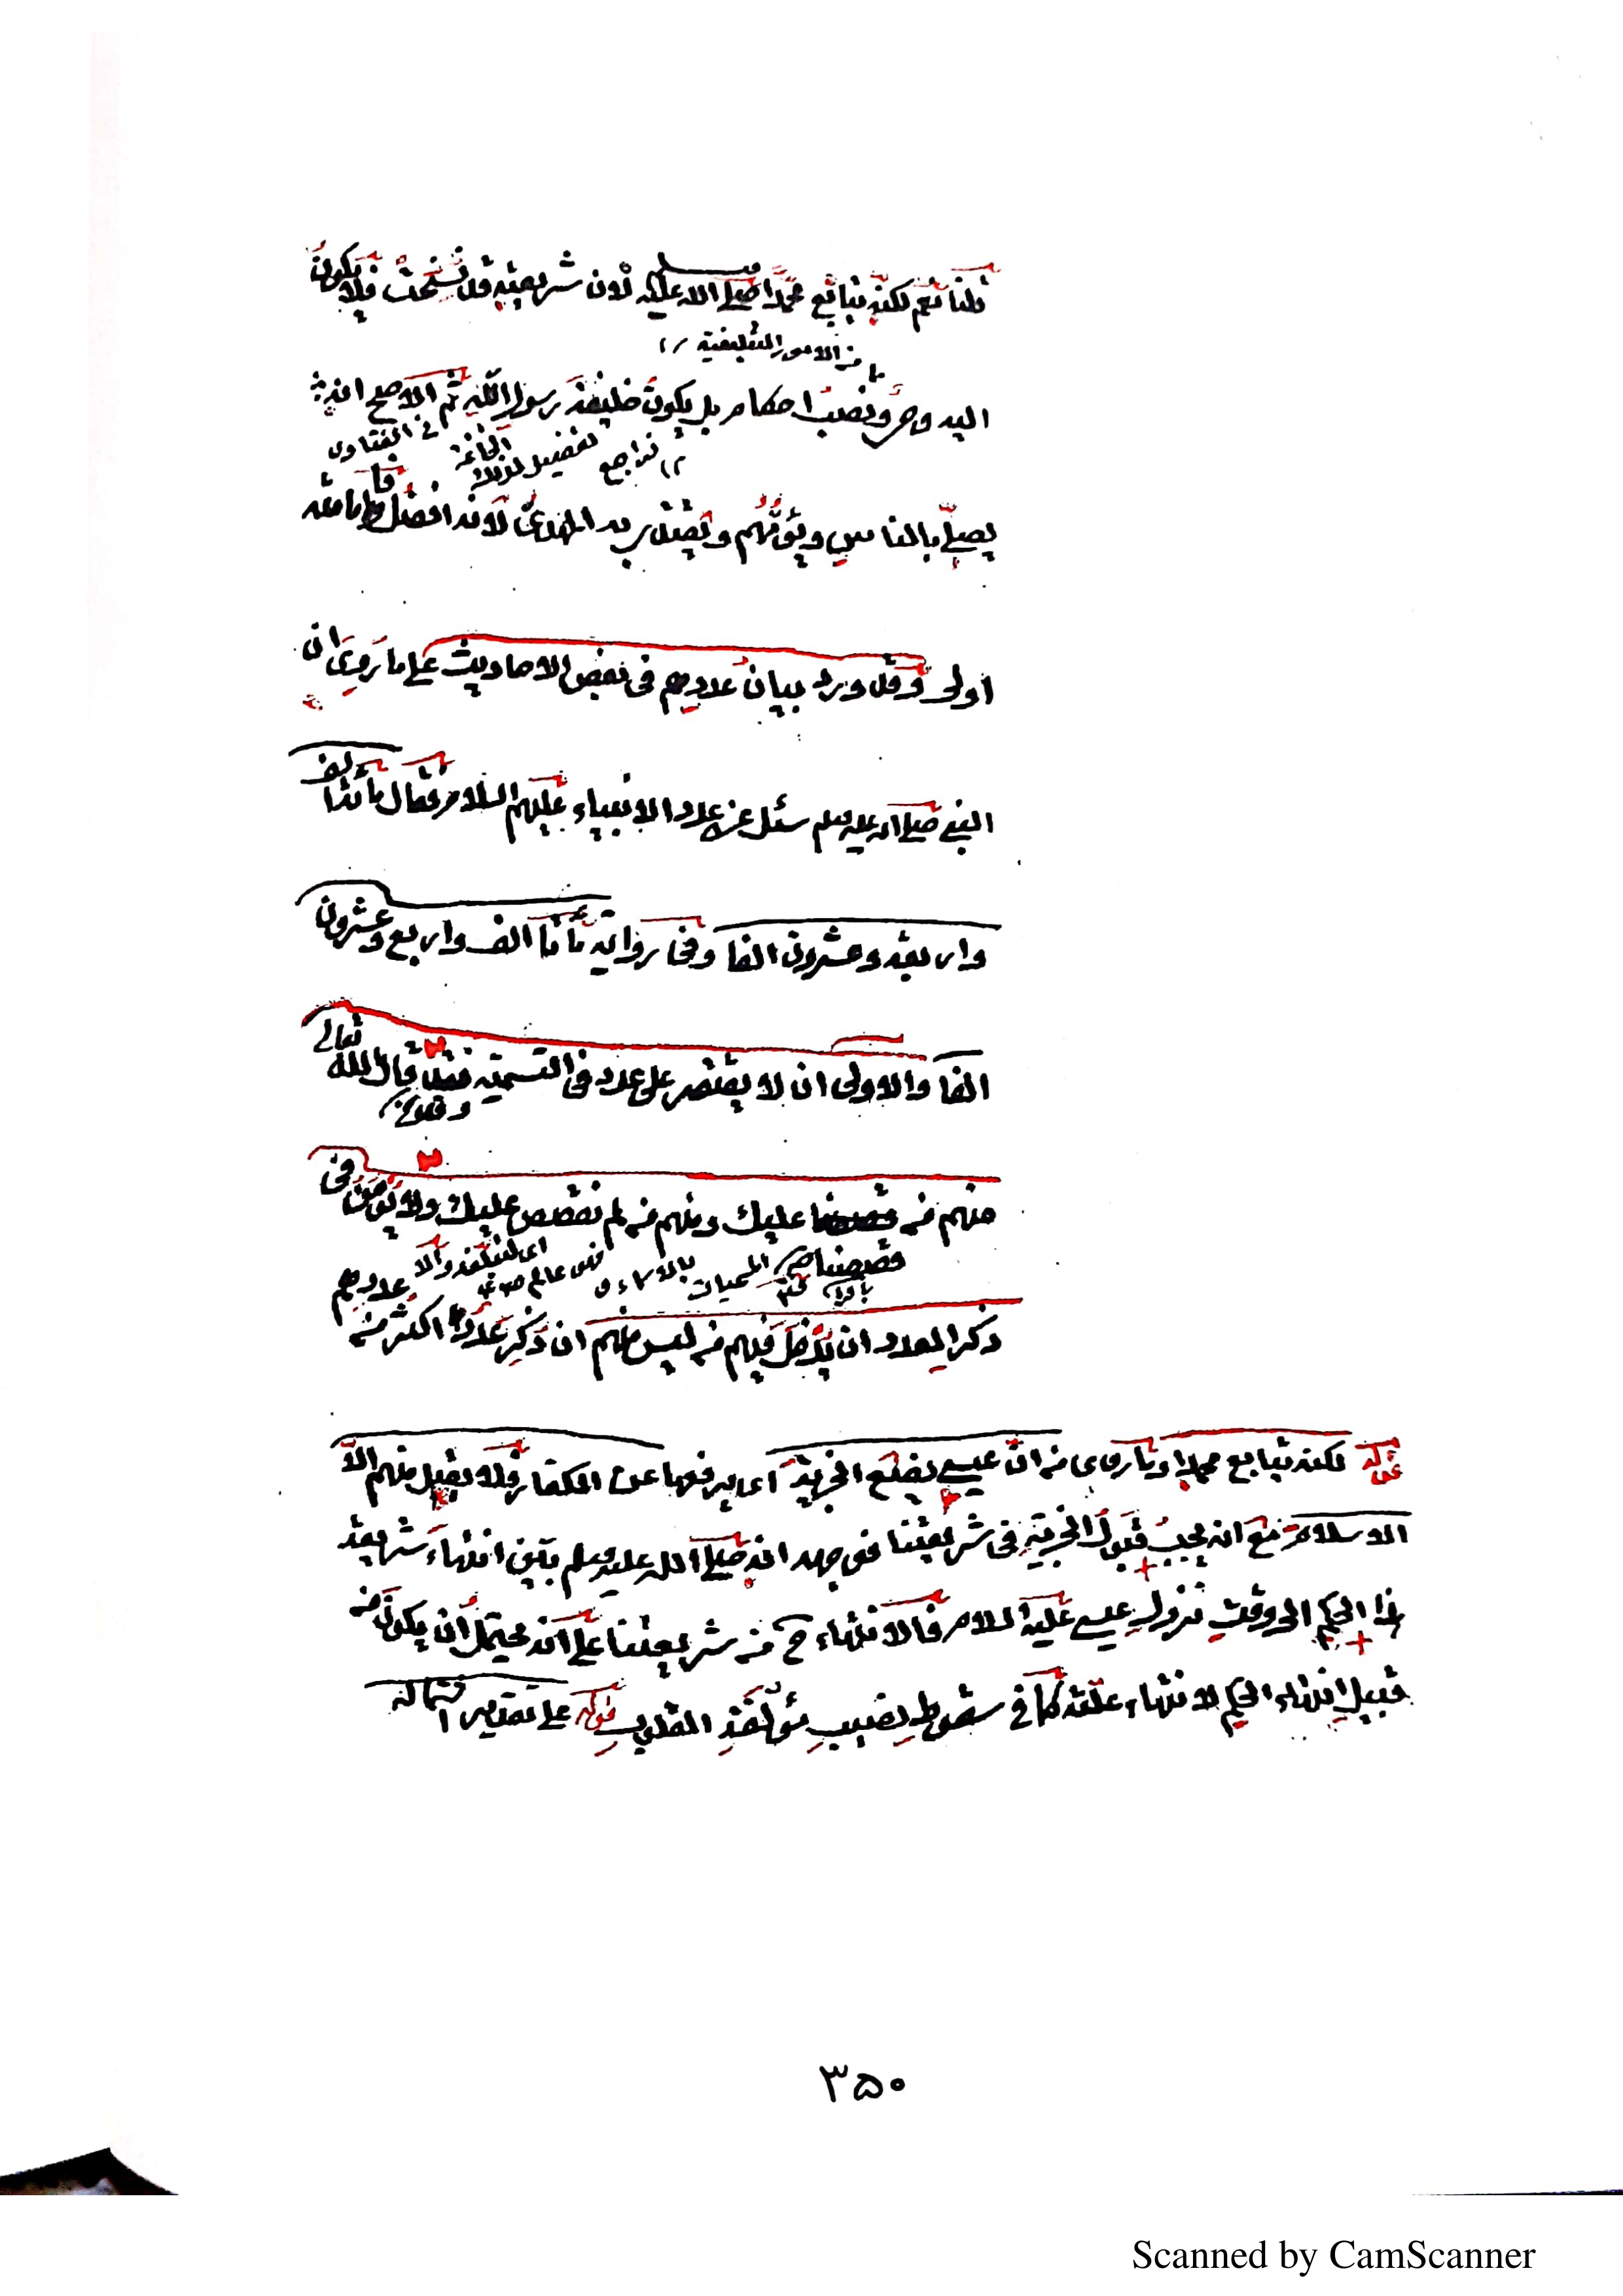 قلنا نعم لكنه يتابع محمدا صلى الله عليه وسلم لان شريعته قد نسخت فلا يكون
من الامور التبليغية
اليه وحى ونصب احكام بل يكون خليفة رسول الله ثم الاصح انه
تفضيل في الفتاوى
يصلى بالناس ويؤمهم ويقتدى به المهدى لانه افضل فامامته
اولى وقد ورد بيان عددهم فى بعض الاحاديث على ما روى ان
النبى صلى الله عليه وسلم سئل عن عدد الانبياء عليهم السلام فقال مائة الف
واربعة وعشرون الفا وفى رواية مأتا الف واربع وعشرون
الفا والاولى ان لا يقتصر على عدد فى التسمية فقد قال الله تعالى
منهم من قصصنا عليك ومنهم من لم نقصص عليك ولا يؤمن فى
قصصناهم
ذكر العدد ان يدخل فيهم من ليس منهم ان ذكر عدد اكثر من عددهم
قوله لكنه يتابع محمدا وما روى من ان عيسى يضع الجزية اى يرفعها عن الكفار ولا يقبل منهم الا
الاسلام مع انه يجب قبول الجزية فى شريعتنا فوجهه انه صلى الله عليه وسلم بين انتهاء شرعية
هذا الحكم الى وقت نزول عيسى عليه السلام فالانتهاء ح من شريعتنا على انه يحتمل ان يكون من
قبيل انتهاء الحكم لانتهاء علته كما فى سقوط نصيب مؤلفة القلوب قوله على تقدير اشتماله
٣٥٠
Scanned by CamScanner